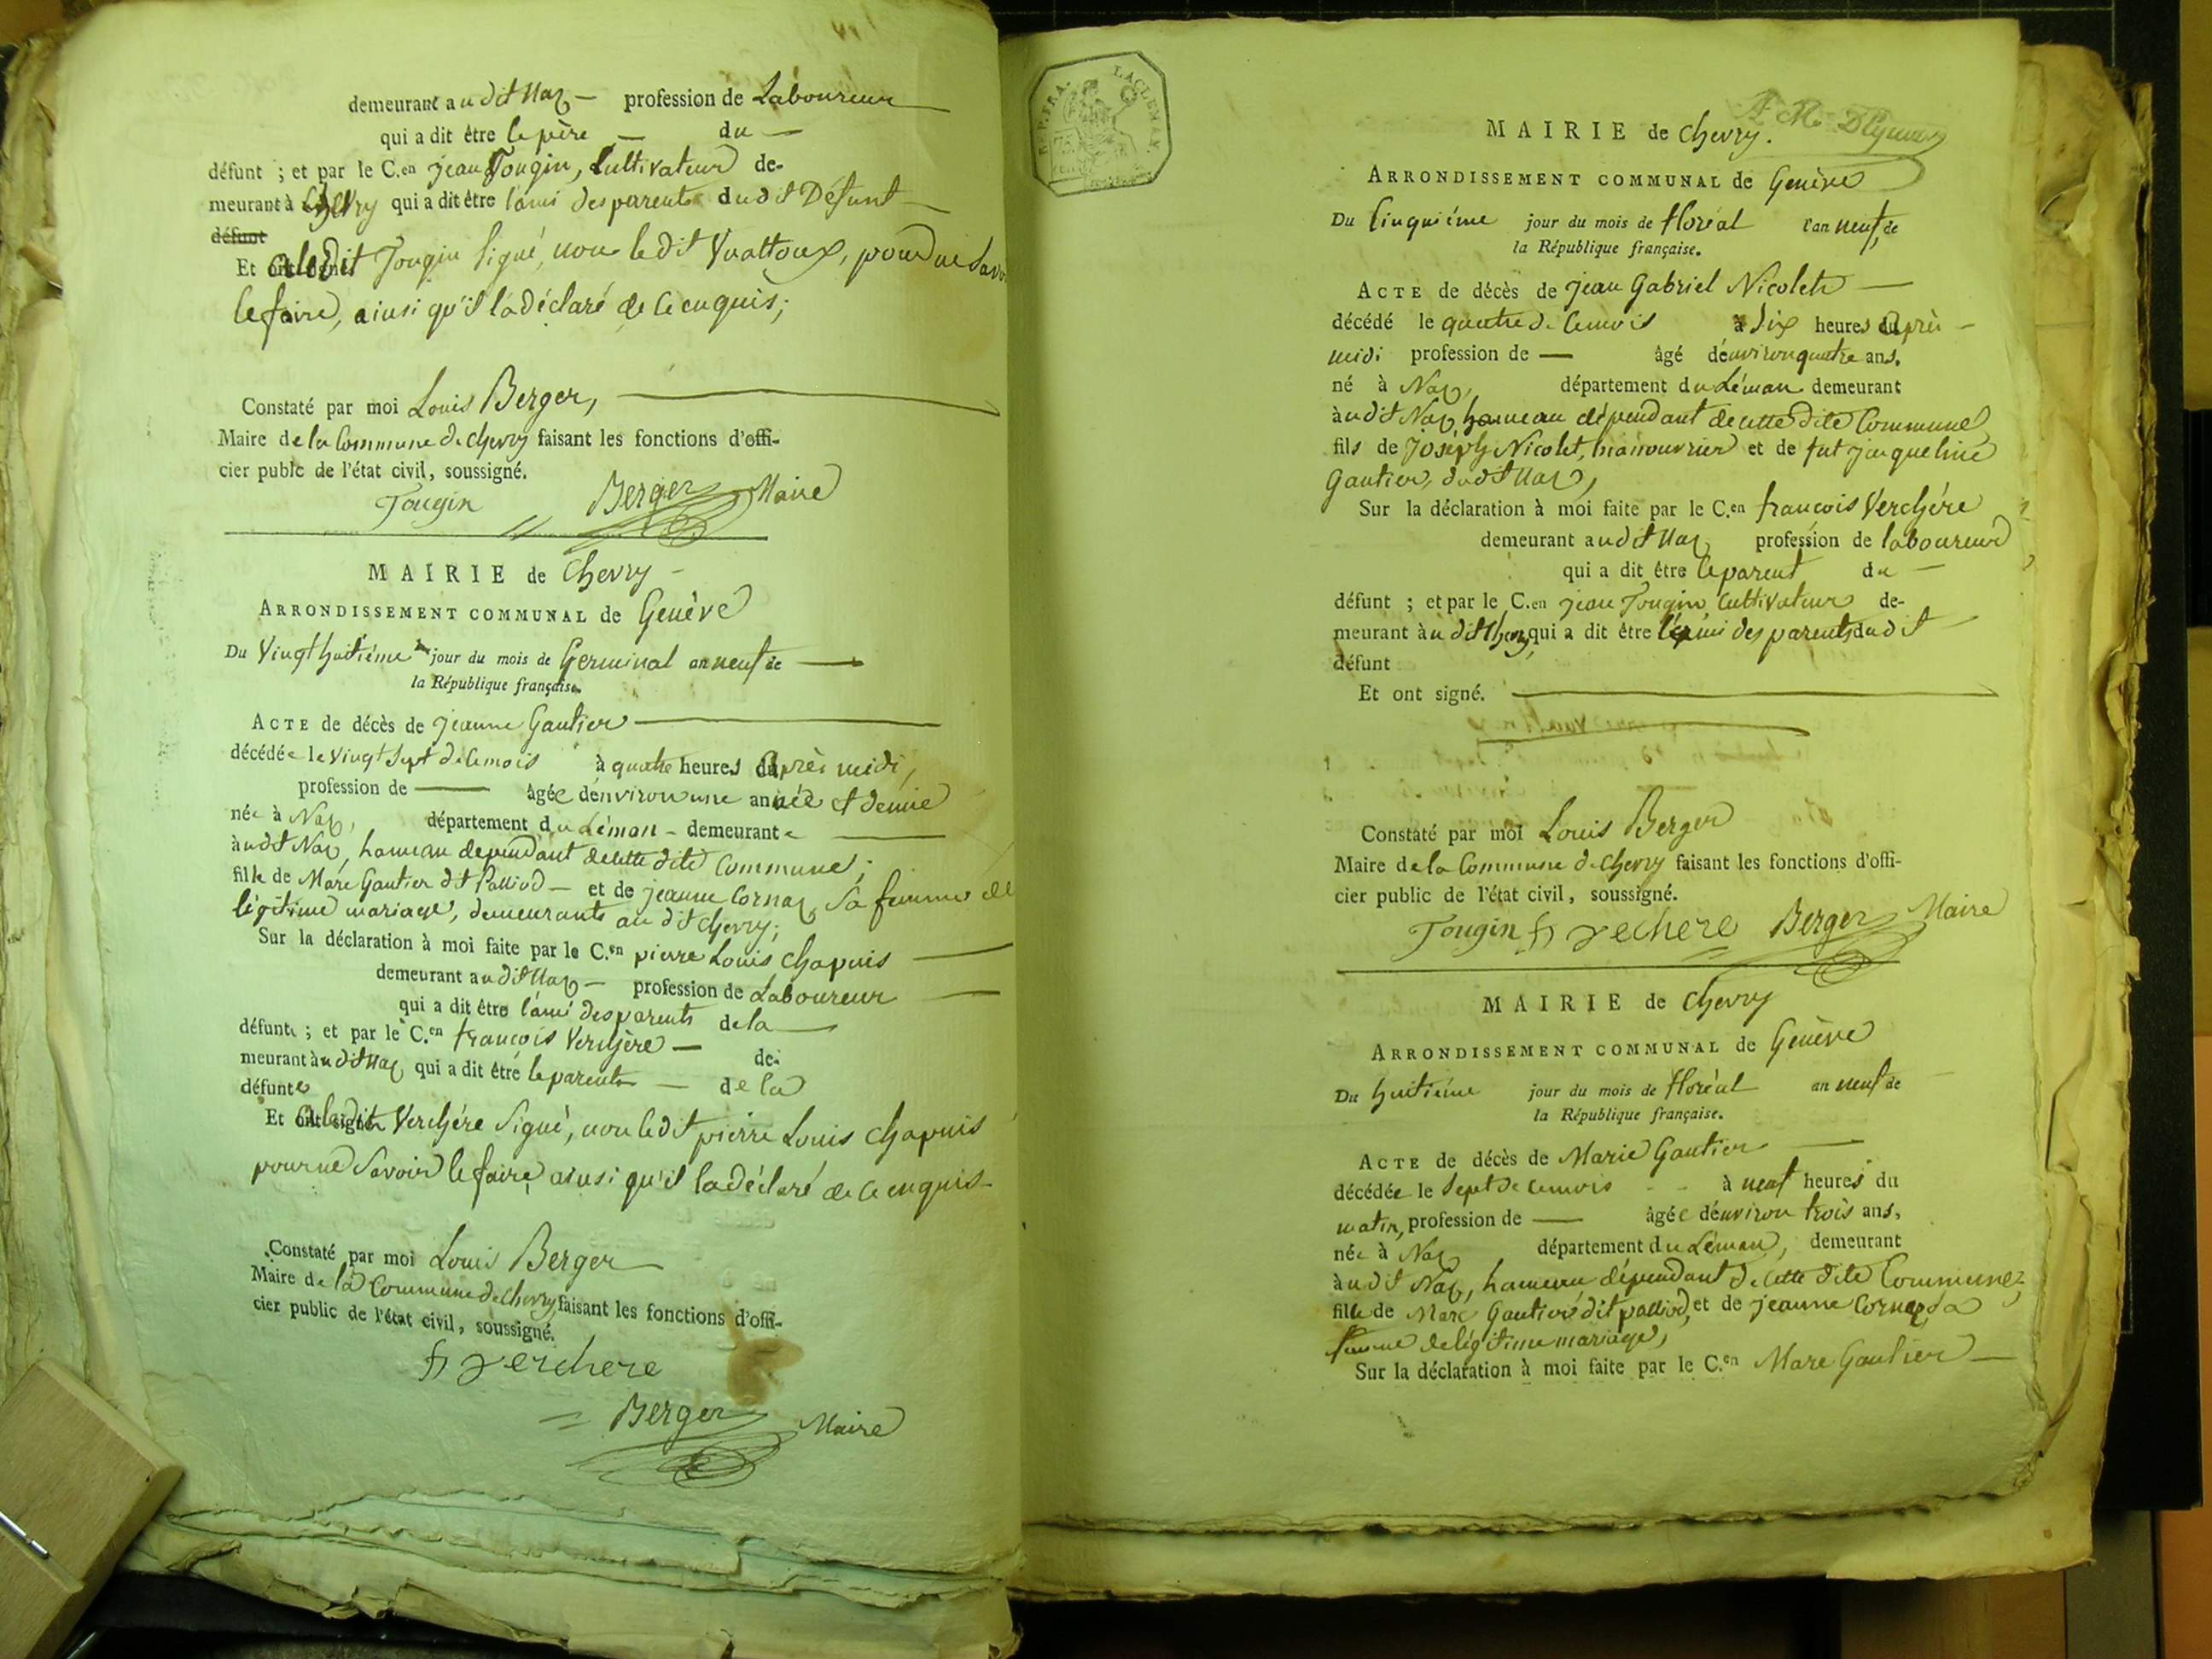 demeurant audit Naz — profession de Laboureur
qui a dit être le père — du —
défunt ; et par le C.en jean Tougin, Cultivateur de-
meurant à Chevry qui a dit être l'ami des parents dudit Défunt
défunt
Et a ledit Tougin signé, non ledit Vuattoux, pour ne savoir
le faire, ainsi qu'il l'a déclaré de ce enquis;
Constaté par moi Louis Berger,
Maire de la Commune de chevry faisant les fonctions d'offi-
cier public de l'état civil, soussigné.
Tougin Berger Maire
MAIRIE de Chevry
ARRONDISSEMENT COMMUNAL de Genève
Du Vingt huitième jour du mois de Germinal an neuf de
la République française.
ACTE de décès de jeanne Gautier
décédée le vingt sept de ce mois à quatre heures après midi,
profession de — âgée d'environ une année et demie
née à Naz, département du Léman - demeurante
audit Naz, hameau dépendant de cette dite Commune;
fille de Marc Gautier dit Palliod — et de jeanne Cornaz sa femme de
légitime mariage, demeurants au dit chevry;
Sur la déclaration à moi faite par le C.en pierre Louis chapuis
demeurant audit Naz — profession de Laboureur
qui a dit être l'ami des parents de la
défunte ; et par le C.en françois Verchère — de-
meurant audit Naz qui a dit être le parent — de la
défunte
Et a ledit Verchère Signé, non ledit pierre Louis chapuis
pour ne savoir le faire ainsi qu'il l'a déclaré de ce enquis.
Constaté par moi Louis Berger
Maire de la Commune de Chevry faisant les fonctions d'offi-
cier public de l'état civil, soussigné.
fs verchere
Berger Maire
REP. FRA.
MAIRIE de Chevry.
ARRONDISSEMENT COMMUNAL de Genève
Du Cinquième jour du mois de floréal l'an neuf, de
la République française.
ACTE de décès de jean Gabriel Nicolet
décédé le quatre de ce mois à six heures après -
midi profession de — âgé d'environ quatre ans.
né à Naz, département du Léman demeurant
audit Naz, hameau dépendant de cette dite Commune
fils de Joseph Nicolet, manouvrier et de fut jacqueline
Gautier, dudit Naz,
Sur la déclaration à moi faite par le C.en francois Verchére
demeurant audit Naz profession de laboureur
qui a dit être le parent du —
défunt ; et par le C.en jean Tougin, Cultivateur de-
meurant audit Chevry, qui a dit être l'ami des parents dudit
défunt
Et ont signé.
Constaté par moi Louis Berger
Maire de la Commune de Chevry faisant les fonctions d'offi-
cier public de l'état civil, soussigné.
Tougin fs vechere Berger Maire
MAIRIE de Chevry
ARRONDISSEMENT COMMUNAL de Genève
Du huitième jour du mois de floréal an neuf de
la République française.
ACTE de décès de Marie Gautier
décédée le Sept de ce mois à neuf heures du
matin, profession de — âgée d'environ trois ans,
née à Naz département du Léman, demeurant
audit Naz, hameau dépendant de cette dite Commune;
fille de Marc Gautier dit palliod, et de jeanne Cornaz sa
femme de légitime mariage,
Sur la déclaration à moi faite par le C.en Marc Gautier —